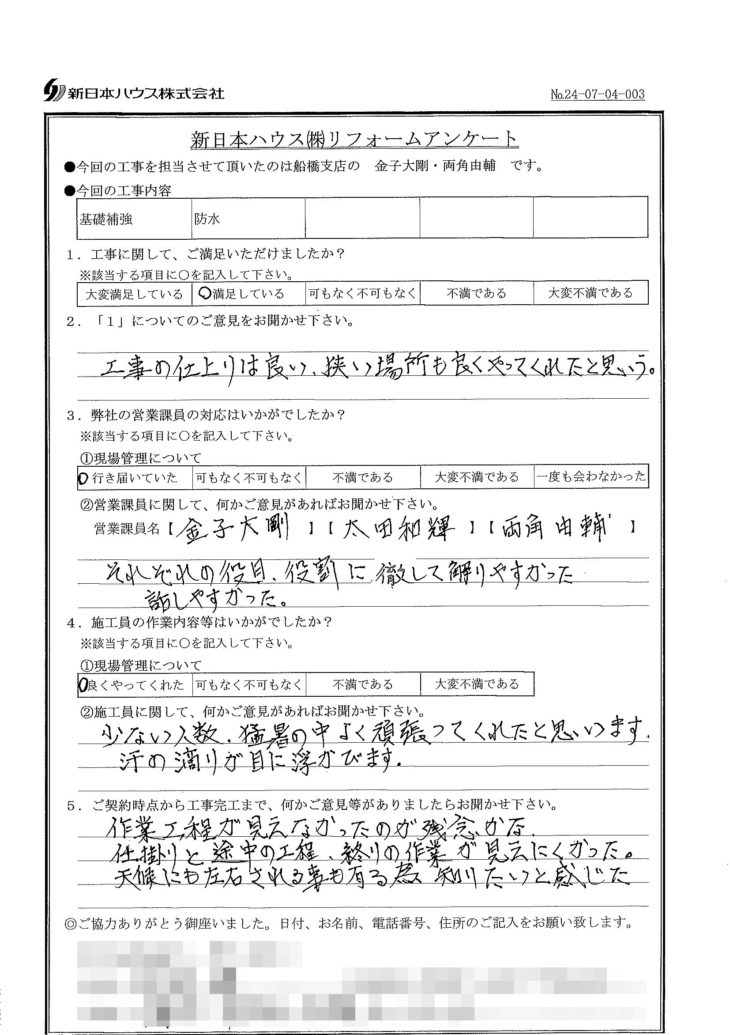 新日本ハウス株式会社
No.24-07-04-003
新日本ハウス㈱リフォームアンケート
●今回の工事を担当させて頂いたのは船橋支店の 金子大剛・両角由輔 です。
●今回の工事内容
基礎補強 防水
1．工事に関して、ご満足いただけましたか？
※該当する項目に○を記入して下さい。
大変満足している ○満足している 可もなく不可もなく 不満である 大変不満である
2．「1」についてのご意見をお聞かせ下さい。
工事の仕上りは良い、狭い場所も良くやってくれたと思いう。
3．弊社の営業課員の対応はいかがでしたか？
※該当する項目に○を記入して下さい。
①現場管理について
○行き届いていた 可もなく不可もなく 不満である 大変不満である 一度も会わなかった
②営業課員に関して、何かご意見があればお聞かせ下さい。
営業課員名【金子大剛】【太田和輝】【両角由輔】
それぞれの役目、役割に徹して解りやすかった
話しやすかった。
4．施工員の作業内容等はいかがでしたか？
※該当する項目に○を記入して下さい。
①現場管理について
○良くやってくれた 可もなく不可もなく 不満である 大変不満である
②施工員に関して、何かご意見があればお聞かせ下さい。
少ない人数、猛暑の中よく頑張ってくれたと思いいます.
汗の滴りが目に浮かびます.
5．ご契約時点から工事完工まで、何かご意見等がありましたらお聞かせ下さい。
作業工程が見えなかったのが残念かな、
仕掛りと途中の工程、終りの作業が見えにくかった。
天候にも左右される事も有る為、知りたいと感じた
◎ご協力ありがとう御座いました。日付、お名前、電話番号、住所のご記入をお願い致します。